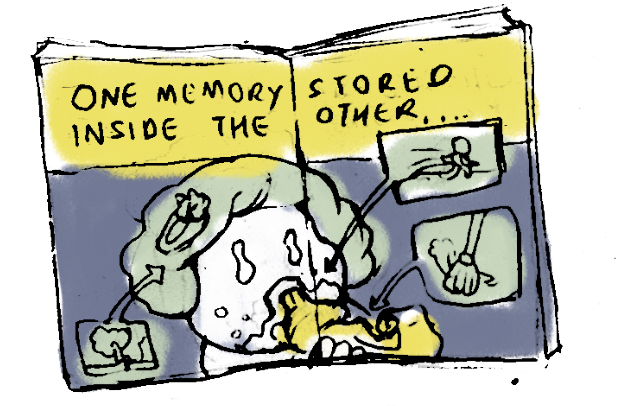 ONE MEMORY STORED
INSIDE THE OTHER....